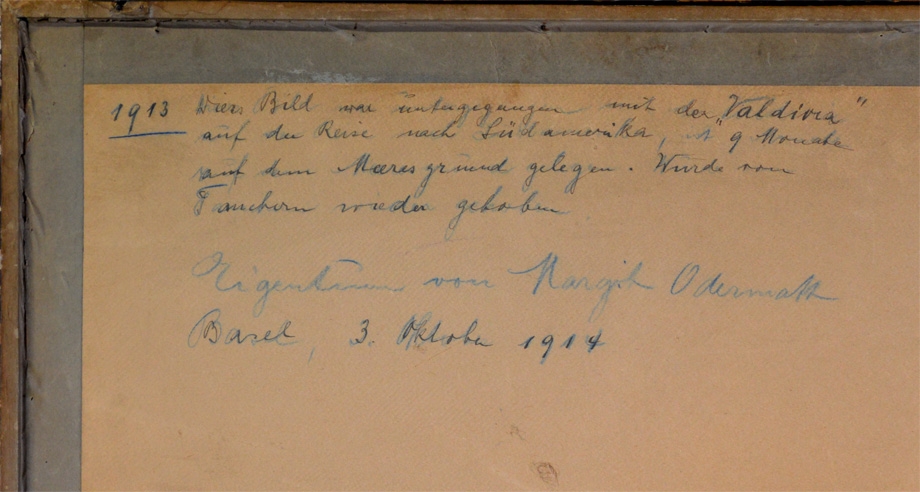 1913 Dies Bild war untergegangen mit der "Valdivia"
auf der Reise nach Südamerika, 9 Monate
auf dem Meeresgrund gelegen. Wurde von
Tauchern wieder gehoben.
Eigentum von Margit Odermatt
Basel, 3. Oktober 1914